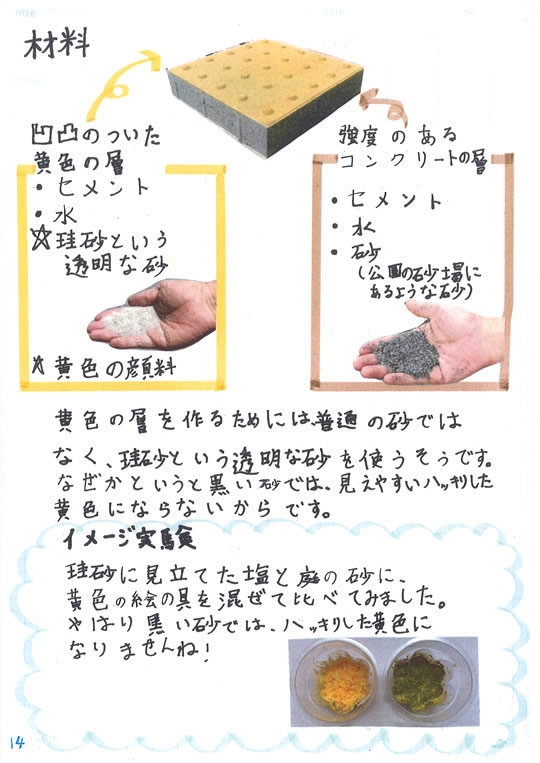 材料
凹凸のついた
黄色の層
・セメント
・水
☆珪砂という
透明な砂
☆黄色の顔料
強度のある
コンクリートの層
・セメント
・水
・砂
(公園の砂場に
あるような砂)
黄色の層を作るためには、普通の砂では
なく、珪砂という透明な砂を使うそうです。
なぜかというと黒い砂では、見えやすいハッキリした
黄色にならないからです。
イメージ実験
珪砂に見立てた塩と庭の砂に、
黄色の絵の具を混ぜて比べてみました。
やはり黒い砂では、ハッキリした黄色に
なりませんね!
14